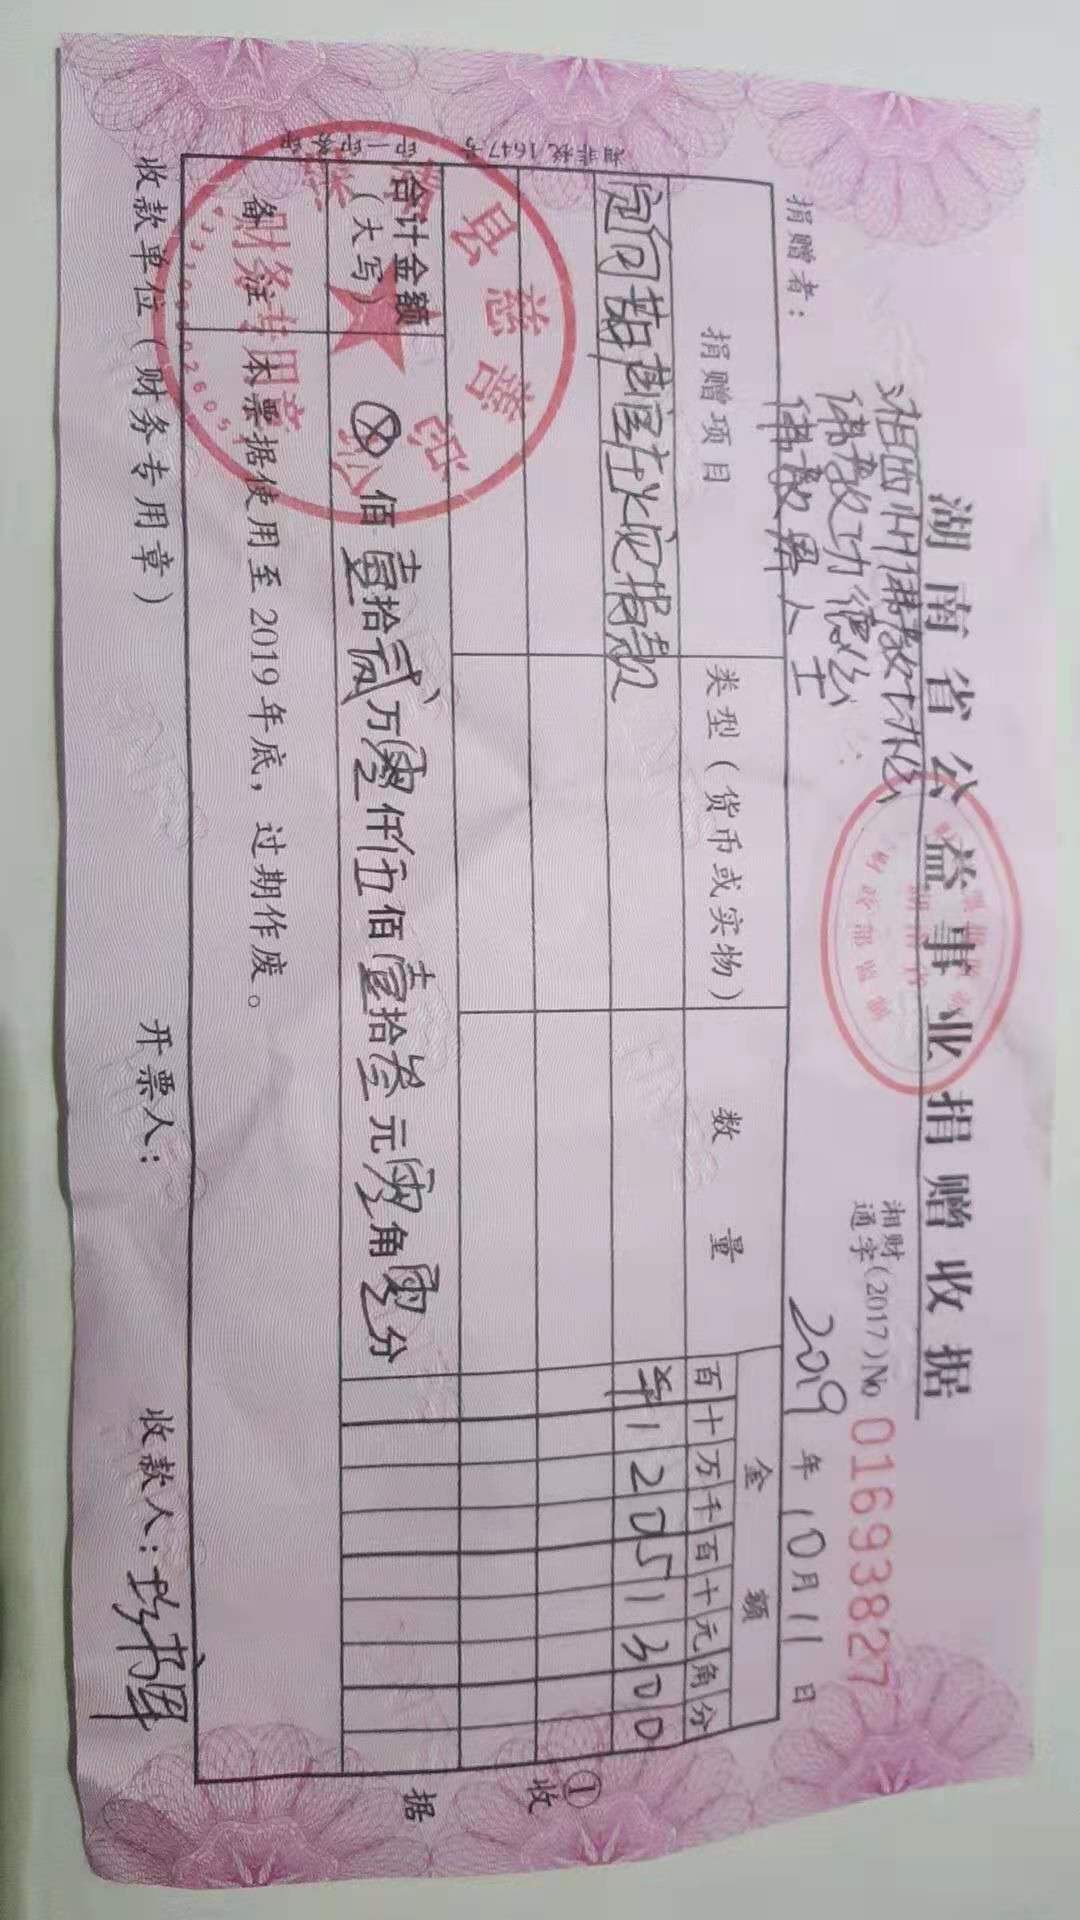 湖南省公益事业捐赠收据
湘财
通字(2017)No 0169382​7
湘西州佛教协会
佛教功德会
捐赠者: 佛教界人士
2019年10月11日
捐赠项目 类型(货币或实物) 数量 金额
百十万千百十元角分
捐款
¥12051300
合计金额(大写) ⊗佰壹拾贰万零仟伍佰壹拾叁元零角零分
备注 本票据使用至2019年底，过期作废。
收款单位(财务专用章) 开票人: 收款人:
①收据
县慈善
财务专用章